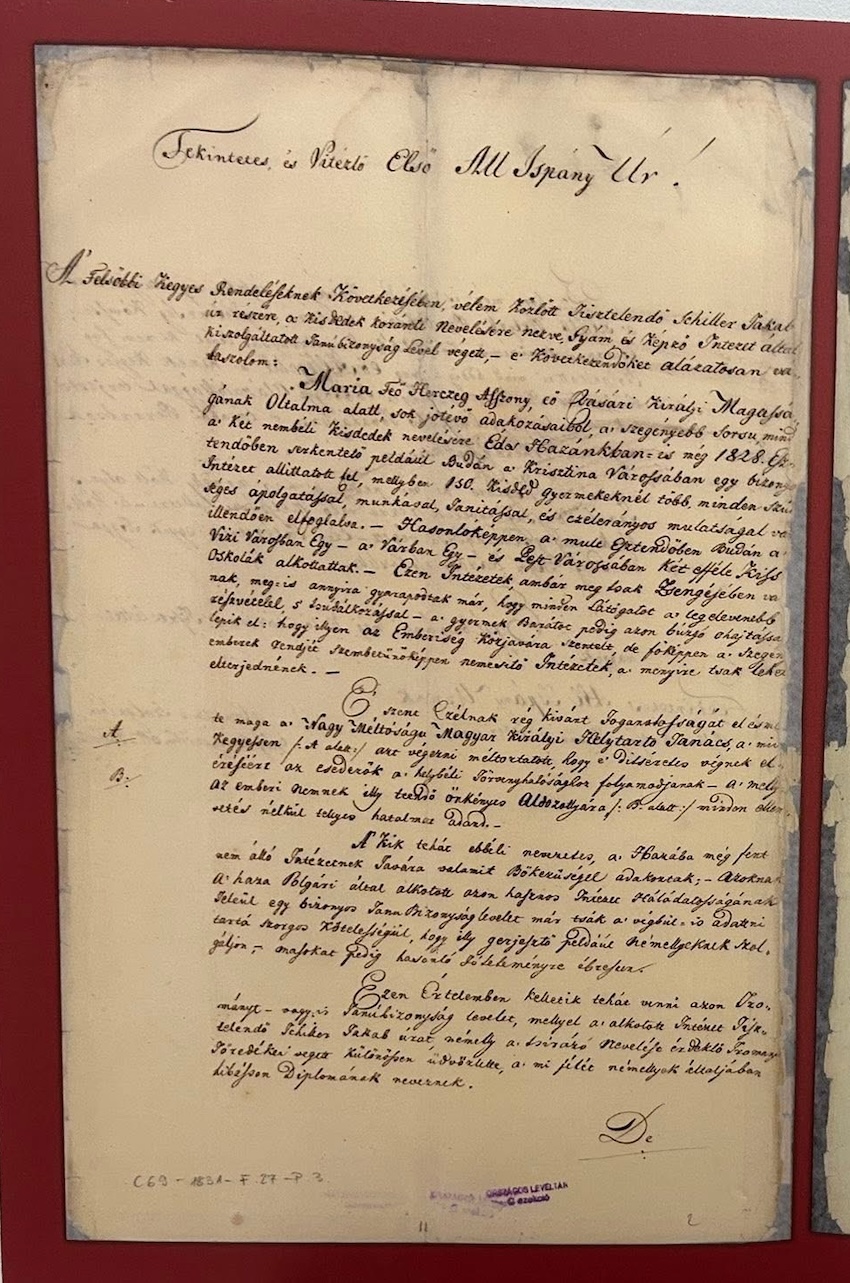 Tekintetes, és Vitézlő Első All Ispány Úr!
A' Felsőbbi Kegyes Rendeléseknek Következésében, vélem közlött Tisztelendő Schiller Jakab
úr részére, a Kisdedek koránti Nevelésére nézve, Gyám, és Képző Intézet által
kiszolgáltatott Tanúbizonyság Levél végett, – e' Következendőket alázatosan vá-
laszolom:
Mária Feő Herczeg Aszszony, eő Császári Királyi Magassá
gának Oltalma alatt, sok jótévő adakozásaiból, a' szegényebb Sorsu, mind
a' Két nembéli Kisdedek nevelésére Edes Hazánkban-is még 1828. Esz-
tendőben serkentető például Budán a Krisztina Városában egy bizonyos
Intézet állittatott fel, mellyben 150. Kisded gyermekeknél több, minden szük
séges ápolgatással, munkával, Tanitással, és czélerányos mulatságal va
illendően elfoglalva. – Hasonlóképpen, a mult Esztendőben Budán a'
Vizi Városban Egy – a' Várban Egy – és Pest Városában Két efféle Kiss
Oskolák alkottattak. – Ezen Intézetek, ámbár még tsak Zsengéjében va
nak, meg-is annyira gyarapodtak már, hogy minden Látogatót a legelevenebb
részvétellel, s tsudálkozással – a' gyermek Barátot pedig azon buzgó ohajtással
lepik el: hogy illyen az Emberiség Közjavára szentelt, de főképpen a Szegén
emberek rendjét szembetünőképpen nemesítő Intézetek, a menyire tsak lehet
elterjednének. –
E' szent Czélnak rég kivánt foganatosságát elésmé
A.
te maga a' Nagy Méltóságu Magyar Királyi Helytartó Tanács, a' mi
kegyessen /: A alatt :/ azt végezni méltóztatott, hogy é' Ditséretes végnek el-
B.
éréséért az esedezők a' helybéli Törvényhatósághoz folyamodjanak – a' melly
az emberi Nemnek illy teendő önkényes Aldozattyára /: B. alatt :/ minden ellen
vetés nélkül tellyes hatalmat adand. –
A' Kik tehát ebbéli nevezetes, a' Hazába még fent
nem álló Intézetnek Javára valamit Bőkezüséggel adakoztak; – Azoknak
A' haza Polgári által alkotott azon hasznos Intézet Háládatosságának
Jeléül egy bizonyos Tanu Bizonyság levelet már tsák a' végbül-is adattni
tartá szorgos Kötelességiül, hogy illy gerjesztő például Némellyeknek szol-
gáljon, – másokat pedig hasonló Jótéteményre ébreszen.
Ezen Értelemben kelletik tehát venni azon Iro-
mányt – vagy-is Tanúbizonyság levelet, mellyel a' alkotott Intézet Tisz-
telendő Schiller Jakab urat, némelly a' Nevelése érdeklő
Töredékei végett különössen üdvözlötte, a mi félét némellyek általjában
hibássan Diplomának neveznek.
De
C 69 – 1831 – F. 27 – P 3.
ORSZÁGOS LEVÉLTÁR
11
2